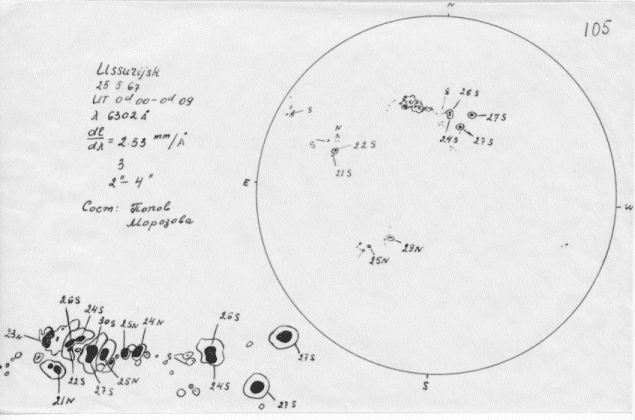 105
Ussurijsk
25 5 67
UT 0d 00-0d 09
λ 6302 Å
dl/dλ = 2.53 mm/Å
3
2"- 4"
Сост: Попов
Морозова
N
S
26S
S
27S
24S
27S
N
S
22S
21S
E
W
23N
25N
S
26S
24S
23N
30S
25N
24N
26S
S
27S
22S
27S
25N
24S
21N
27S